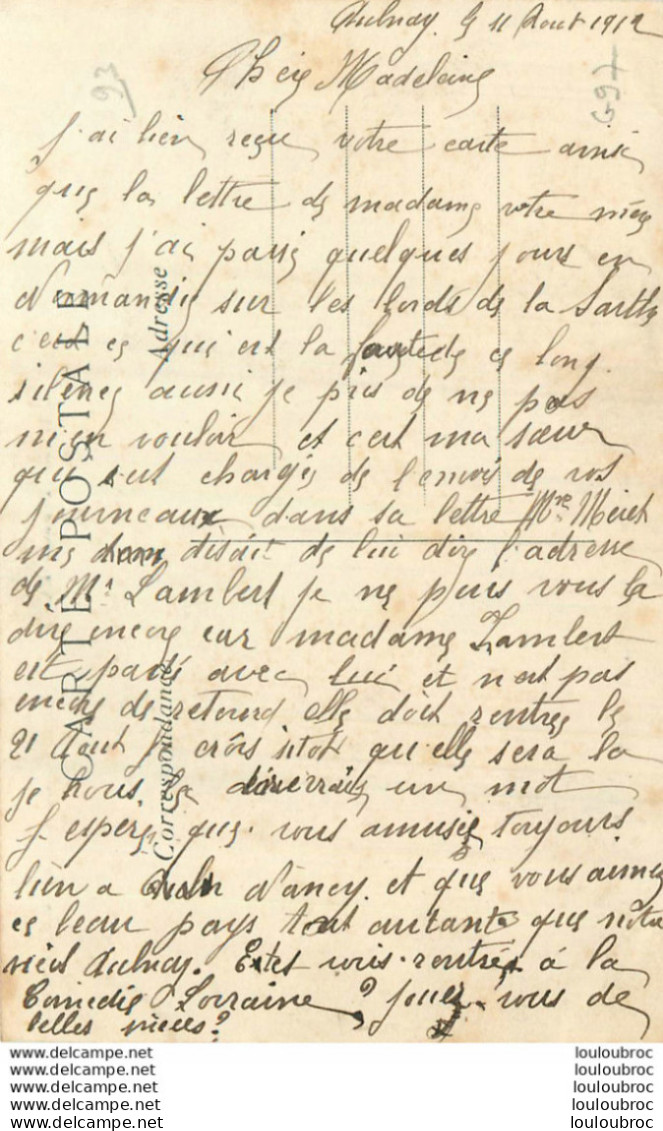 Aulnay le 11 Aout 1912
Cher Madeleine
93
697
j'ai bien reçu votre carte ainsi
que la lettre de madame votre mère
mais j'ai passé quelques jours en
Normandie sur les bords de la Sarthe
c'est ce qui est la faute de ce long
silence aussi je pris de ne pas
m'en vouloir et c'est ma sœur
qui est chargée de l'envoi de vos
journeaux dans sa lettre Mme
me disait de lui dire l'adresse
de Mr Lambert je ne peus vous la
dire encore car madame Lambert
est parti avec lui et n'est pas
encore de retourd elle doit rentrée le
21 Aout je crois sitôt qu'elle sera la
je vous un mot
J'espère que vous amusée toujours
bien a Nancy et que vous aimez
ce beau pays tout autante que notre
vieil Aulnay. Êtes vous rentrée à la
Comédie Lorraine ? jouez vous de
belles pièces ?
CARTE POSTALE
Correspondance
Adresse
www.delcampe.net louloubroc
www.delcampe.net louloubroc
www.delcampe.net louloubroc
www.delcampe.net louloubroc
www.delcampe.net louloubroc